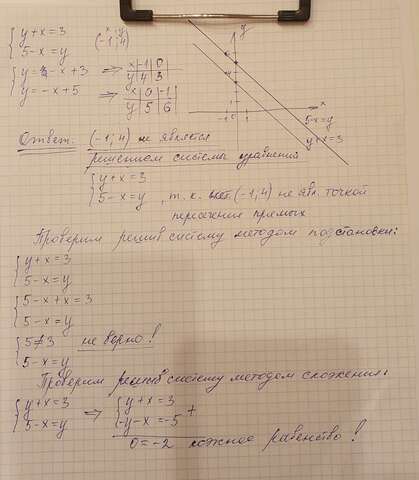 { y + x = 3
5 - x = y
x y
(-1; 4)
{ y = - x + 3 => x | -1 | 0
y | 4 | 3
y = - x + 5 => x | 0 | -1
y | 5 | 6
y
6
4
1
-1 0 1 x
5-x=y
y+x=3
Ответ: (-1; 4) не является
решением системы уравнений
{ y + x = 3
5 - x = y , т. к. (-1; 4) не явл. точкой
пересечения прямых
Проверим решив систему методом подстановки:
{ y + x = 3
5 - x = y
{ 5 - x + x = 3
5 - x = y
{ 5 ≠ 3 не верно!
5 - x = y
Проверим решив систему методом сложения:
{ y + x = 3 => { y + x = 3
5 - x = y { -y - x = -5 +
0 = -2 ложное равенство!